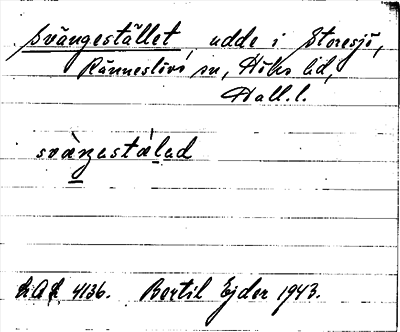 Svängestället, udde i Storesjö,
Ränneslövs sn, Höks hd,
Hall. l.
svàŋestàləd
LAL 4136. Bertil Ejder 1943.